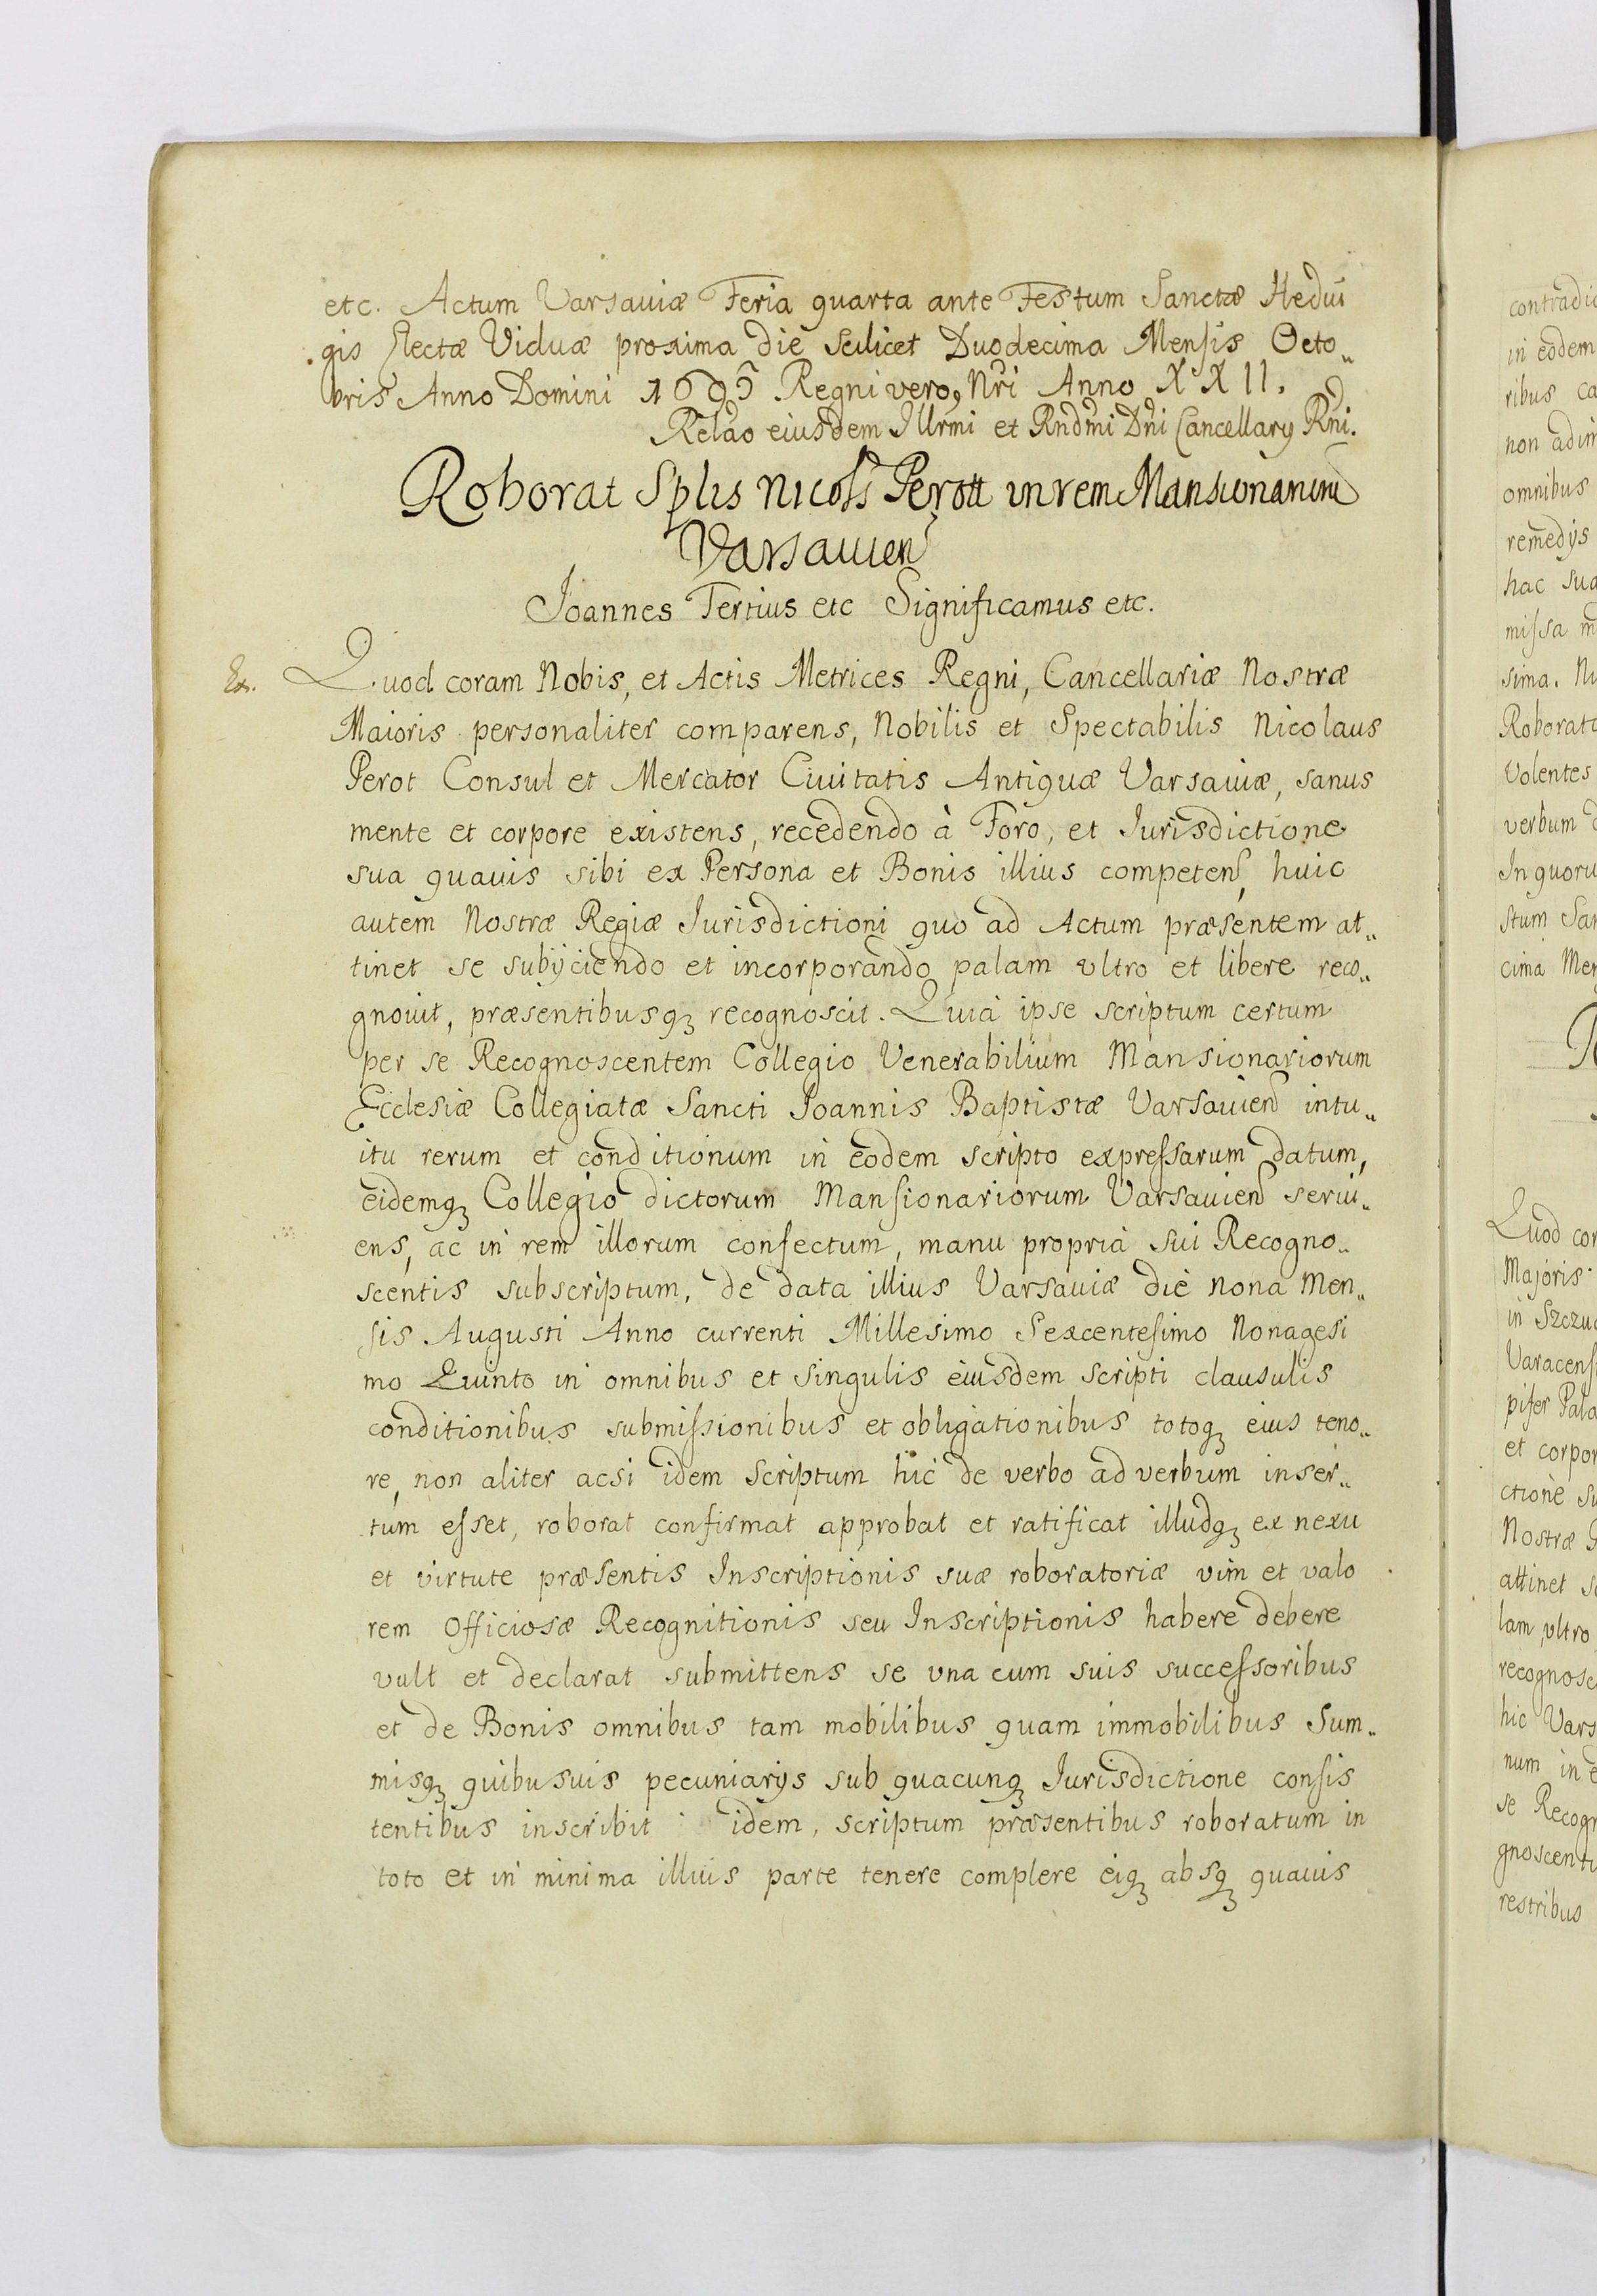 etc. Actum Varsaviæ Feria quarta ante Festum Sanctæ Hedui
gis Electæ Viduæ proxima die scilicet Duodecima Mensis Octo„
bris Anno Domini 1695 Regni vero Nri Anno XXII.
Relao eiusdem Illrmi et Rndmi Dni Cancellarÿ Rni.
Roborat Splis Nicols Perott in rem Mansionarium
Varsavien
Joannes Tertius etc Significamus etc.
Quod coram Nobis, et Actis Metrices Regni, Cancellariæ Nostræ
Maioris personaliter comparens, Nobilis et Spectabilis Nicolaus
Perot Consul et Mercator Civitatis Antiquæ Varsaviæ, sanus
mente et corpore existens, recedendo à Foro, et Jurisdictione
sua quavis sibi ex Persona et Bonis illius competen, huic
autem Nostræ Regiæ Jurisdictioni quo ad Actum præsentem at„
tinet se subÿciendo et incorporando palam ultro et libere reco„
gnovit, præsentibusq; recognoscit. Quià ipse scriptum certum
per se Recognoscentem Collegio Venerabilium Mansionariorum
Ecclesiæ Collegiatæ Sancti Joannis Baptistæ Varsavien intu„
itu rerum et conditionum in eodem scripto expressarum datum,
eidemq; Collegio dictorum Mansionariorum Varsavien servi„
ens, ac in rem illorum confectum, manu proprià sui Recogno„
scentis subscriptum, de data illius Varsaviæ die nona Men„
sis Augusti Anno currenti Millesimo Sexcentesimo Nonagesi
mo Quinto in omnibus et singulis eiusdem scripti clausulis
conditionibus submissionibus et obligationibus totoq; eius teno„
re, non aliter acsi idem Scriptum hic de verbo ad verbum inser„
tum esset, roborat confirmat approbat et ratificat illudq; ex nexu
et virtute præsentis Inscriptionis suæ roboratoriæ vim et valo
rem Officiosæ Recognitionis seu Inscriptionis habere debere
vult et declarat submittens se una cum suis successoribus
et de Bonis omnibus tam mobilibus quam immobilibus Sum„
misq; quibusvis pecuniarÿs sub quacunq; Jurisdictione consis
tentibus inscribit idem, scriptum præsentibus roboratum in
toto et in minima illius parte tenere complere eiq; absq; quavis